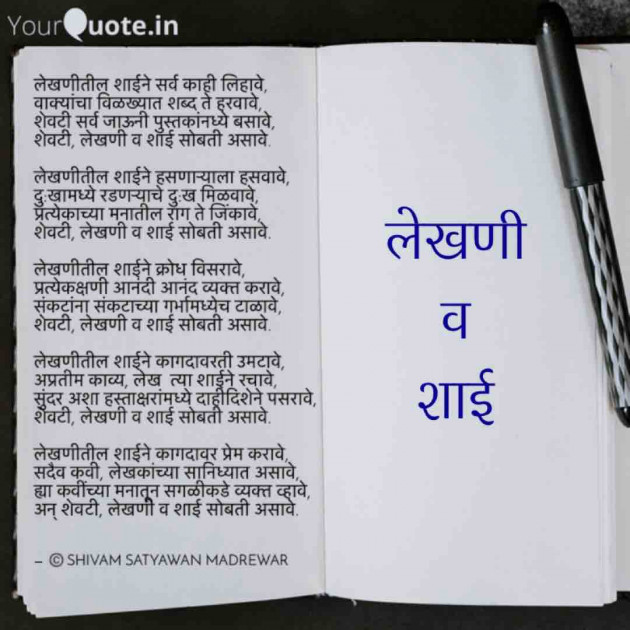 YourQuote.in
लेखणीतील शाईने सर्व काही लिहावे,
वाक्यांचा विळख्यात शब्द ते हरवावे,
शेवटी सर्व जाऊनी पुस्तकांनध्ये बसावे,
शेवटी, लेखणी व शाई सोबती असावे.
लेखणीतील शाईने हसणाऱ्याला हसवावे,
दु:खामध्ये रडणऱ्याचे दु:ख मिळवावे,
प्रत्येकाच्या मनातील राग ते जिंकावे,
शेवटी, लेखणी व शाई सोबती असावे.
लेखणीतील शाईने क्रोध विसरावे,
प्रत्येकक्षणी आनंदी आनंद व्यक्त करावे,
संकटांना संकटाच्या गर्भामध्येच टाळावे,
शेवटी, लेखणी व शाई सोबती असावे.
लेखणीतील शाईने कागदावरती उमटावे,
अप्रतीम काव्य, लेख त्या शाईने रचावे,
सुंदर अशा हस्ताक्षरांमध्ये दाहीदिशेने पसरावे,
शेवटी, लेखणी व शाई सोबती असावे.
लेखणीतील शाईने कागदावर प्रेम करावे,
सदैव कवी, लेखकांच्या सानिध्यात असावे,
ह्या कवींच्या मनातून सगळीकडे व्यक्त व्हावे,
अन् शेवटी, लेखणी व शाई सोबती असावे.
– © SHIVAM SATYAWAN MADREWAR
लेखणी
व
शाई